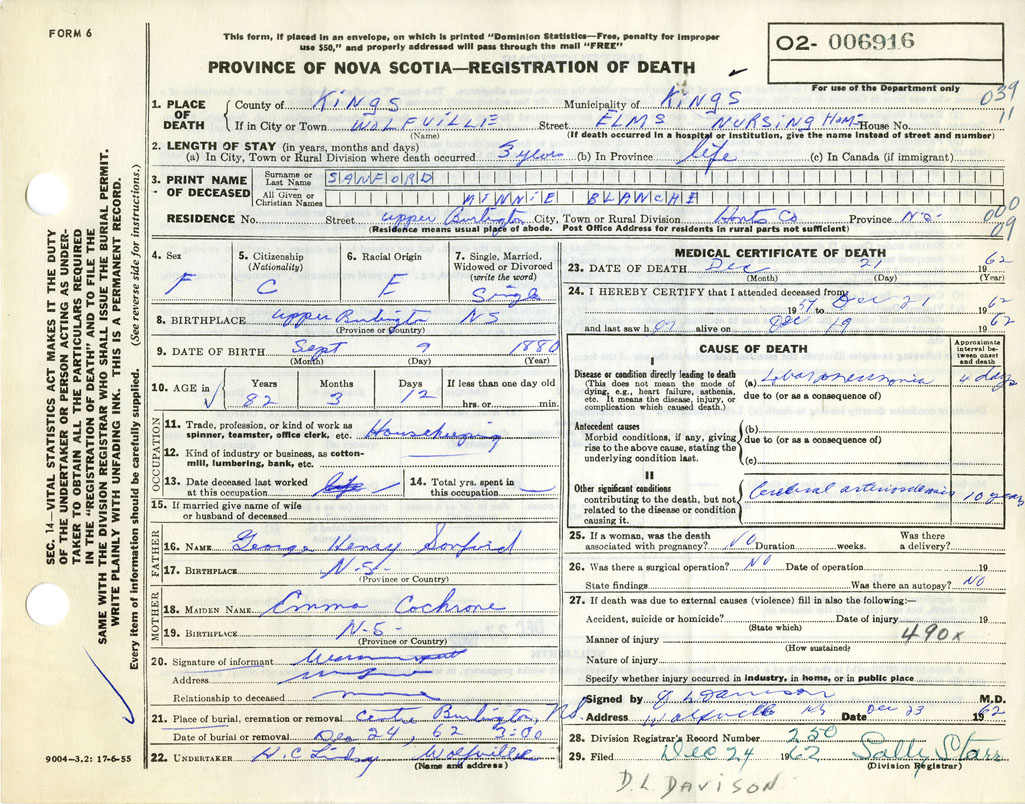 FORM 6
This form, if placed in an envelope, on which is printed "Dominion Statistics—Free, penalty for improper
use $50," and properly addressed will pass through the mail "FREE"
O2- 006916
PROVINCE OF NOVA SCOTIA—REGISTRATION OF DEATH
For use of the Department only
039
11
1. PLACE OF DEATH
County of Kings Municipality of Kings
If in City or Town Wolfville Street Elms Nursing Home House No.
(Name) (If death occurred in a hospital or institution, give the name instead of street and number)
2. LENGTH OF STAY (in years, months and days)
(a) In City, Town or Rural Division where death occurred 3 years (b) In Province life (c) In Canada (if immigrant)
3. PRINT NAME OF DECEASED
Surname or Last Name SANFORD
All Given or Christian Names MINNIE BLANCHE
000
09
RESIDENCE No. Street Upper Burlington City, Town or Rural Division Hants Co Province N.S.
(Residence means usual place of abode. Post Office Address for residents in rural parts not sufficient)
4. Sex F
5. Citizenship (Nationality) C
6. Racial Origin E
7. Single, Married, Widowed or Divorced (write the word) Single
8. BIRTHPLACE Upper Burlington NS
(Province or Country)
9. DATE OF BIRTH Sept 9 1880
(Month) (Day) (Year)
10. AGE in Years 82 Months 3 Days 12 If less than one day old hrs. or min.
OCCUPATION
11. Trade, profession, or kind of work as spinner, teamster, office clerk, etc. Housekeeping
12. Kind of industry or business, as cotton-mill, lumbering, bank, etc.
13. Date deceased last worked at this occupation life
14. Total yrs. spent in this occupation
15. If married give name of wife or husband of deceased
FATHER
16. NAME George Henry Sanford
17. BIRTHPLACE N.S.
(Province or Country)
MOTHER
18. MAIDEN NAME Emma Cochrane
19. BIRTHPLACE N.S.
(Province or Country)
20. Signature of informant
Address
Relationship to deceased
21. Place of burial, cremation or removal Centre Burlington, NS.
Date of burial or removal Dec 24, 62 2:00
22. UNDERTAKER Wolfville
(Name and address)
MEDICAL CERTIFICATE OF DEATH
23. DATE OF DEATH Dec 21 1962
(Month) (Day) (Year)
24. I HEREBY CERTIFY that I attended deceased from
1957 to Dec 21 1962
and last saw her alive on Dec 19 1962
CAUSE OF DEATH
Approximate interval between onset and death
I
Disease or condition directly leading to death
(This does not mean the mode of dying, e.g., heart failure, asthenia, etc. It means the disease, injury, or complication which caused death.)
(a) Lobar pneumonia 4 days
due to (or as a consequence of)
Antecedent causes
Morbid conditions, if any, giving rise to the above cause, stating the underlying condition last.
(b)
due to (or as a consequence of)
(c)
II
Other significant conditions
contributing to the death, but not related to the disease or condition causing it.
Cerebral arteriosclerosis 10 years
25. If a woman, was the death associated with pregnancy? NO Duration weeks. Was there a delivery?
26. Was there a surgical operation? NO Date of operation
State findings Was there an autopsy? NO
27. If death was due to external causes (violence) fill in also the following:—
Accident, suicide or homicide? Date of injury 19
(State which)
490x
Manner of injury
(How sustained)
Nature of injury
Specify whether injury occurred in industry, in home, or in public place
Signed by D L Davison M.D.
Address Wolfville NS Date Dec 23 1962
28. Division Registrar's Record Number 250
29. Filed Dec 24 1962 Sally Starr
(Division Registrar)
D.L. DAVISON
SEC. 14—VITAL STATISTICS ACT MAKES IT THE DUTY
OF THE UNDERTAKER OR PERSON ACTING AS UNDER-
TAKER TO OBTAIN ALL THE PARTICULARS REQUIRED
IN THE "REGISTRATION OF DEATH" AND TO FILE THE
SAME WITH THE DIVISION REGISTRAR WHO SHALL ISSUE THE BURIAL PERMIT.
WRITE PLAINLY WITH UNFADING INK. THIS IS A PERMANENT RECORD.
Every item of information should be carefully supplied. (See reverse side for instructions.)
9004—3.2: 17-6-55